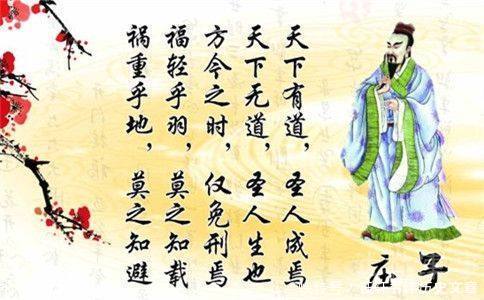 天下有道，圣人成焉
天下无道，圣人生也
方今之时，仅免刑焉
福轻乎羽，莫之知载
祸重乎地，莫之知避
庄子